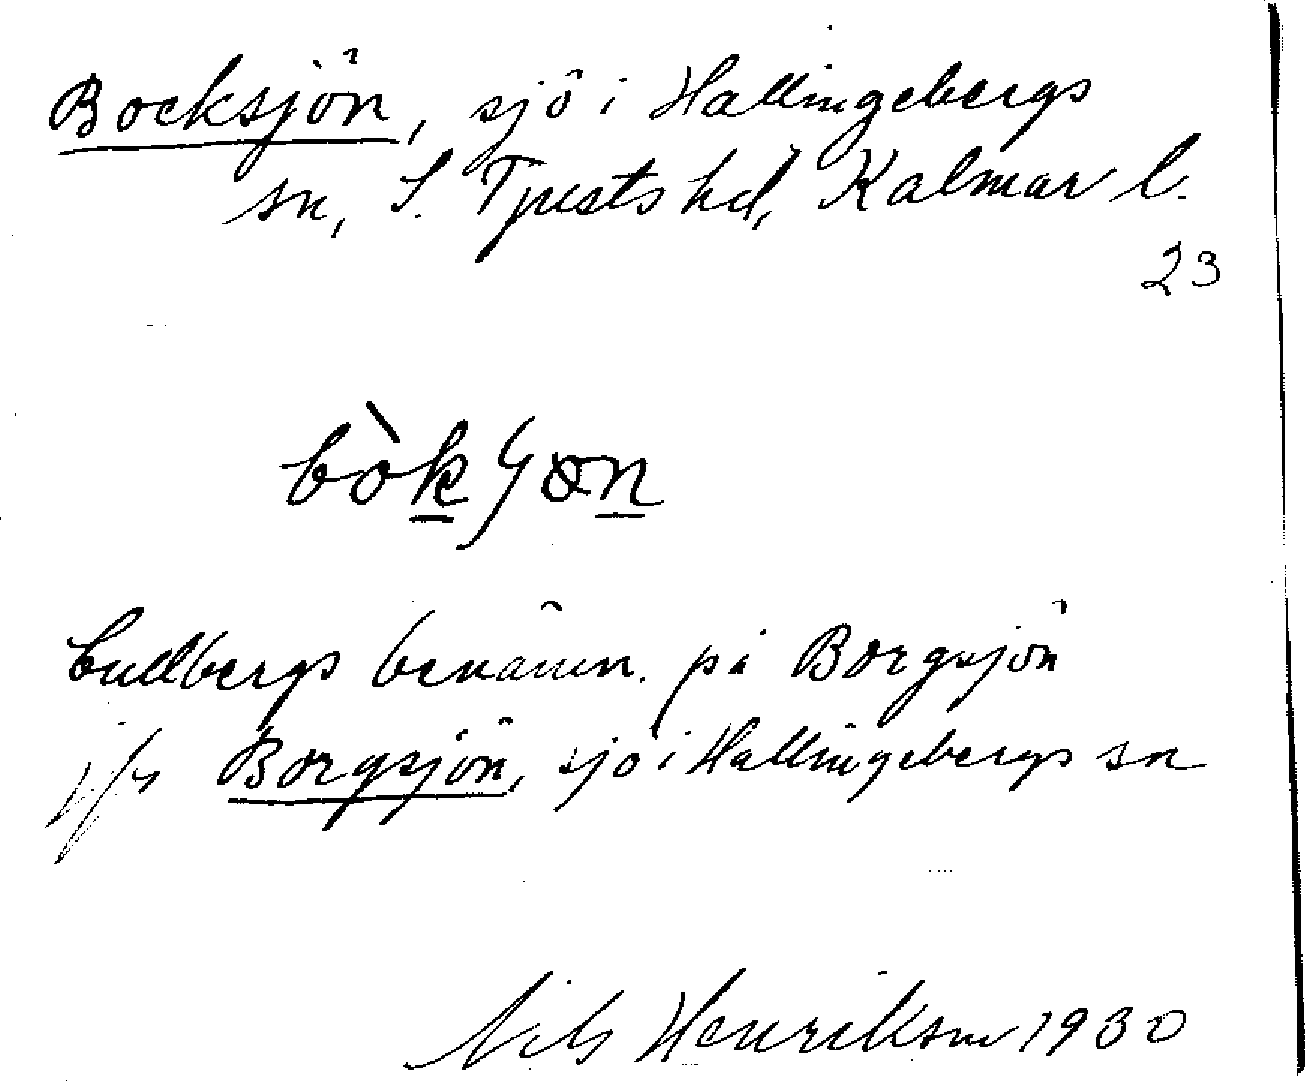 Bocksjön, sjö i Hallingebergs
sn, S. Tjusts hd, Kalmar l.
23
benämn. på Borgsjön
jfr Borgsjön, sjö i Hallingebergs sn
Nils Henrikson 1930